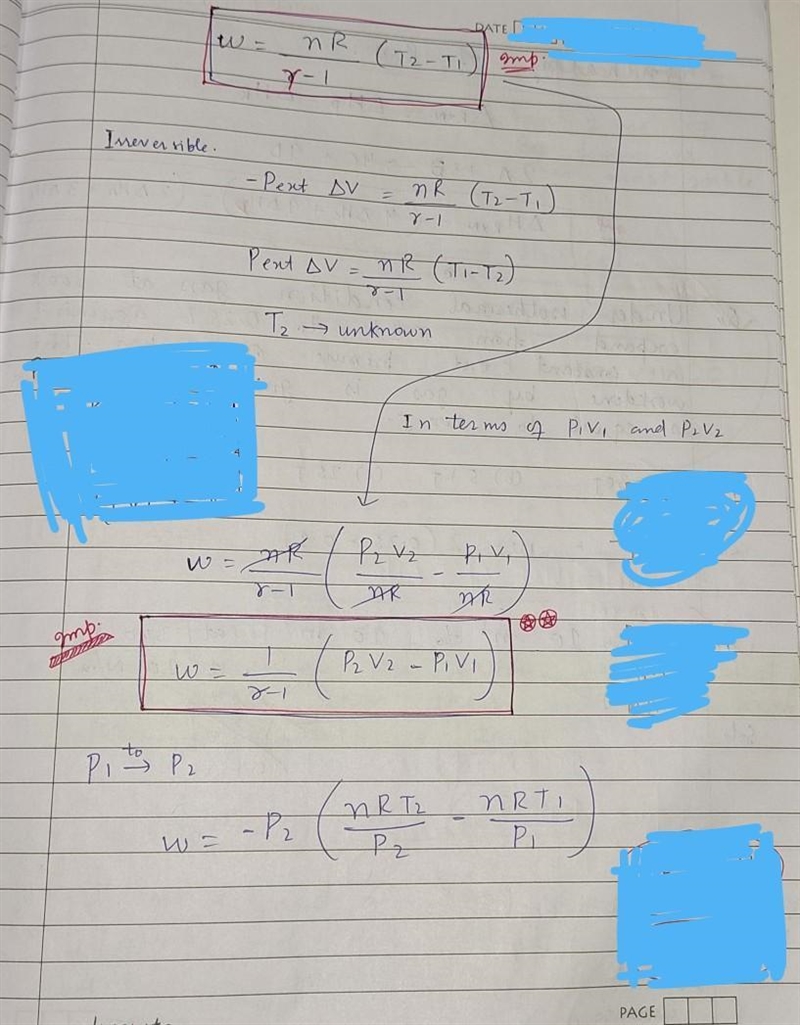 DATE
w = nR/(γ-1) (T2-T1) Imp.
Irreversible.
-Pext ΔV = nR/(γ-1) (T2-T1)
Pext ΔV = nR/(γ-1) (T1-T2)
T2 → unknown
In terms of P1V1 and P2V2
w = nR/(γ-1) (P2V2/nR - P1V1/nR)
Imp.
w = 1/(γ-1) (P2V2 - P1V1)
P1 to→ P2
w = -P2 (nRT2/P2 - nRT1/P1)
PAGE